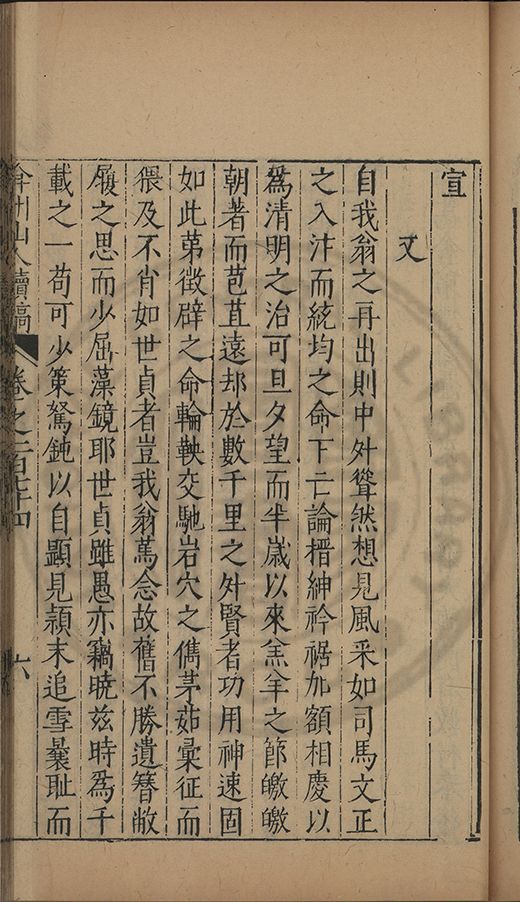 宣
又
自我翁之再出則中外聳然想見風采如司馬文正
之入汴而統均之命下亡論搢紳衿裾加額相慶以
爲清明之治可旦夕望而半歲以來羔羊之節皦皦
朝著而苞苴遠却於數千里之外賢者功用神速固
如此第徵辟之命輪鞅交馳岩穴之儁茅茹彙征而
猥及不肖如世貞者豈我翁篤念故舊不勝遺簪敝
履之思而少屈藻鏡耶世貞雖愚亦竊曉兹時爲千
載之一苟可少策駑鈍以自顯見潁末追雪曩耻而
弇州山人續稿
卷之一百七十四
六